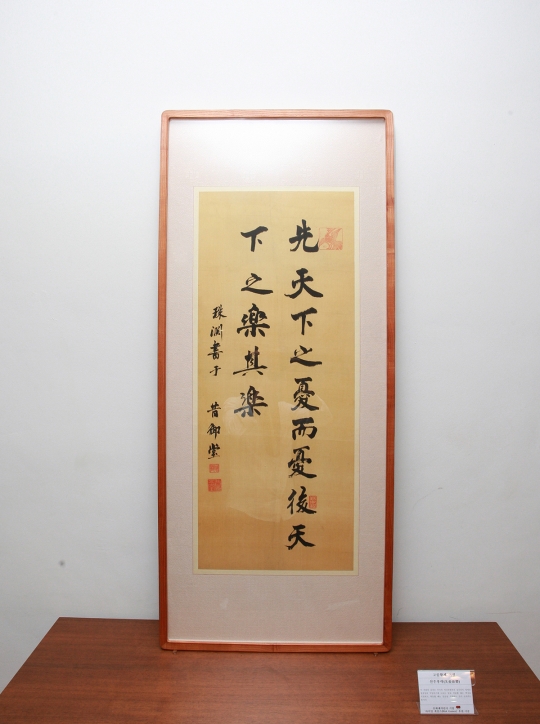 先天下之憂而憂後天
下之樂其楽
珠淵書于